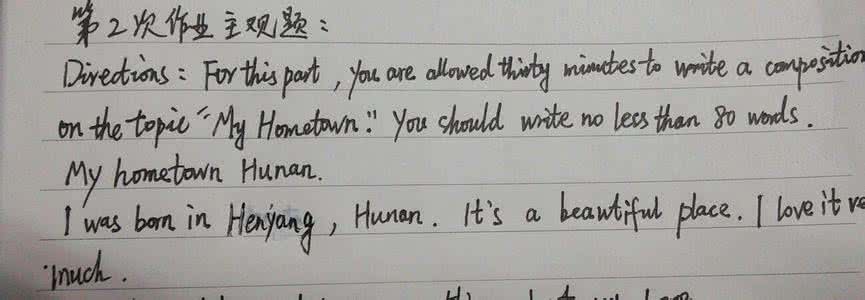 第2次作业主观题：
Directions: For this part, you are allowed thirty minutes to write a composition
on the topic "My Hometown." You should write no less than 80 words.
My hometown Hunan.
I was born in Henyang, Hunan. It's a beautiful place. I love it
much.